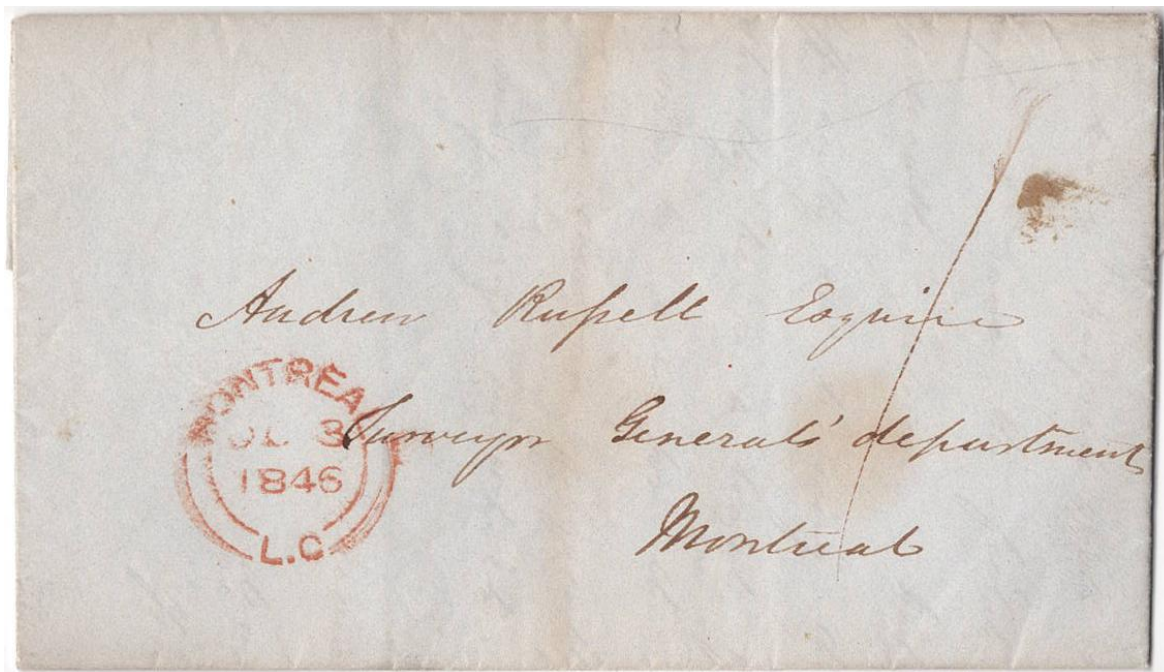 Andrew Russell Esquire
Surveyor Generals' department
Montreal
MONTREAL
JL 3
1846
L.C